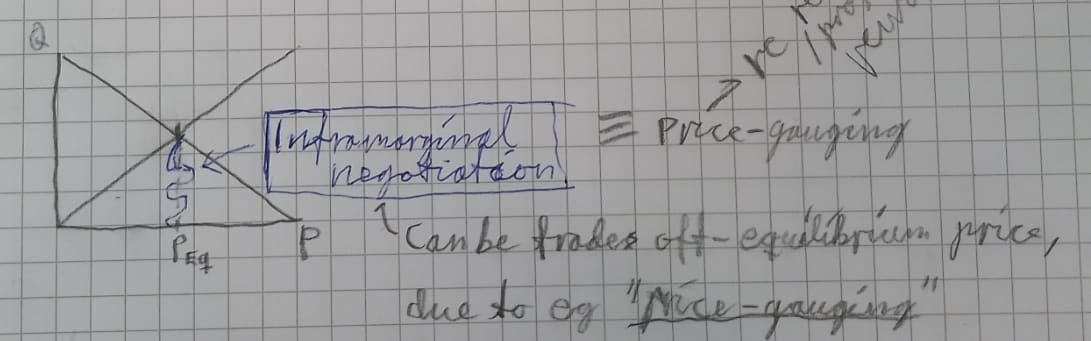 Q
Inframarginal
negotiation
≡ Price-gauging
P_Eq
P
Can be trades off-equilibrium price,
due to eg "Price-gauging"